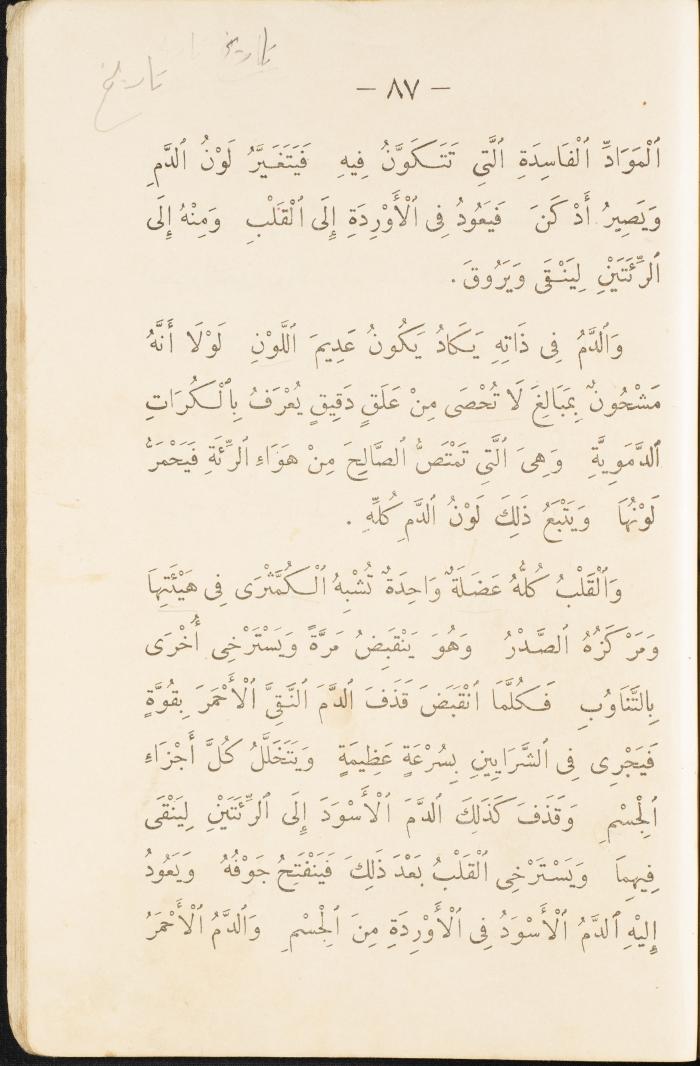 تاريخ
تاريخ
– ٨٧ –
ٱلْمَوَادِّ ٱلْفَاسِدَةِ ٱلَّتِي تَتَكَوَّنُ فِيهِ فَيَتَغَيَّرُ لَوْنُ ٱلدَّمِ
وَيَصِيرُ أَدْكَنَ فَيَعُودُ فِى ٱلْأَوْرِدَةِ إِلَى ٱلْقَلْبِ وَمِنْهُ إِلَى
ٱلرِّئَتَيْنِ لِيَنْقَى وَيَرُوقَ.
وَٱلدَّمُ فِى ذَاتِهِ يَكَادُ يَكُونُ عَدِيمَ ٱللَّوْنِ لَوْلَا أَنَّهُ
مَشْحُونٌ بِمَبَالِغَ لَا تُحْصَى مِنْ عَلَقٍ دَقِيقٍ يُعْرَفُ بِٱلْكُرَاتِ
ٱلدَّمَوِيَّةِ وَهِىَ ٱلَّتِي تَمْتَصُّ ٱلصَّالِحَ مِنْ هَوَاءِ ٱلرِّئَةِ فَيَحْمَرُّ
لَوْنُهَا وَيَتْبَعُ ذَلِكَ لَوْنُ ٱلدَّمِ كُلِّهِ .
وَٱلْقَلْبُ كُلُّهُ عَضَلَةٌ وَاحِدَةٌ تُشْبِهُ ٱلْكُمَّثْرَى فِى هَيْئَتِهَا
وَمَرْكَزُهُ ٱلصَّدْرُ وَهُوَ يَنْقَبِضُ مَرَّةً وَيَسْتَرْخِى أُخْرَى
بِالتَّنَاوُبِ فَكُلَّمَا ٱنْقَبَضَ قَذَفَ ٱلدَّمَ ٱلنَّقِىَّ ٱلْأَحْمَرَ بِقُوَّةٍ
فَيَجْرِى فِى ٱلشَّرَايِينِ بِسُرْعَةٍ عَظِيمَةٍ وَيَتَخَلَّلُ كُلَّ أَجْزَاءِ
ٱلْجِسْمِ وَقَذَفَ كَذَلِكَ ٱلدَّمَ ٱلْأَسْوَدَ إِلَى ٱلرِّئَتَيْنِ لِيَنْقَى
فِيهِمَا وَيَسْتَرْخِى ٱلْقَلْبُ بَعْدَ ذَلِكَ فَيَنْفَتِحُ جَوْفُهُ وَيَعُودُ
إِلَيْهِ ٱلدَّمُ ٱلْأَسْوَدُ فِى ٱلْأَوْرِدَةِ مِنَ ٱلْجِسْمِ وَٱلدَّمُ ٱلْأَحْمَرُ